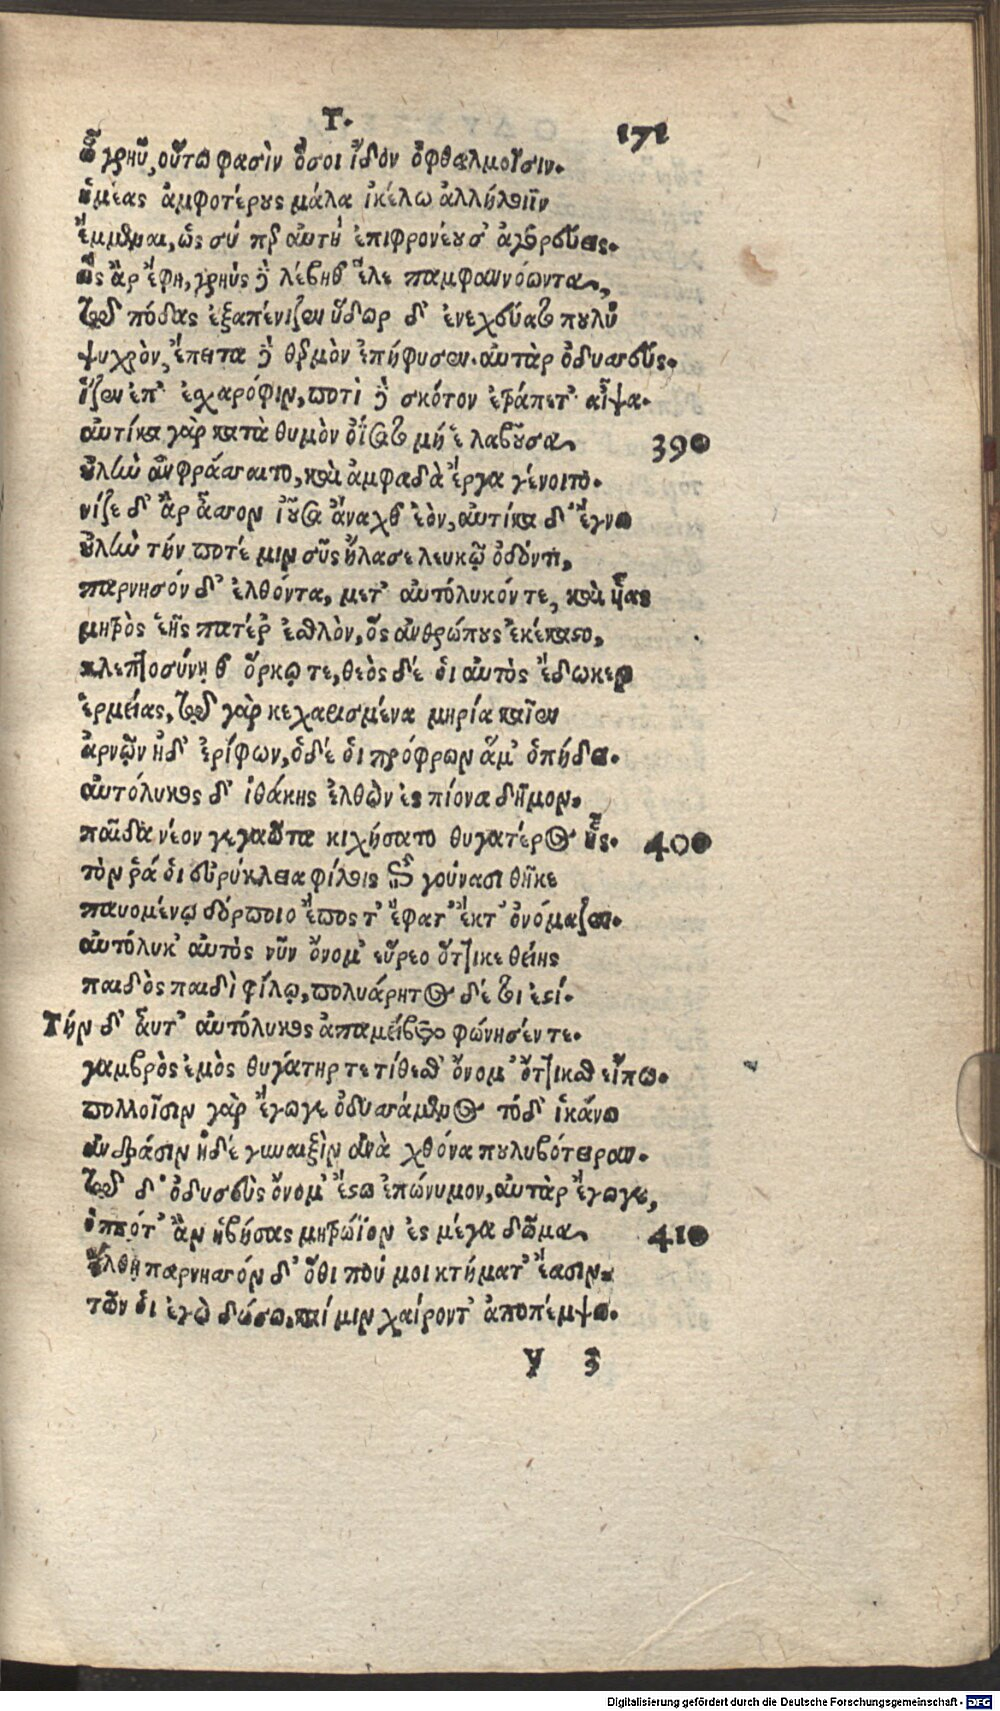 Τ. 171
ὦ γρηῦ, οὕτω φασὶν ὅσοι ἴδον ὀφθαλμοῖσιν.
ἡμέας ἀμφοτέρους μάλα ἰκέλω ἀλλήλοιϊν
ἔμμεναι, ὡς σύ περ αὐτὴ ἐπιφρονέουσ' ἀγορεύεις.
ὣς ἄρ ἔφη, γρηὺς δὲ λέβηθ' ἕλε παμφανόωντα,
τοῦ πόδας ἐξαπένιζεν ὕδωρ δ' ἐνεχεύατο πουλὺ
ψυχρὸν, ἔπειτα δὲ θερμὸν ἐπήφυσεν. αὐτὰρ ὀδυσσεύς.
ἷζεν ἐπ' ἐσχαρόφιν, ποτὶ δὲ σκότον ἐτράπετ' αἶψα.
αὐτίκα γὰρ κατὰ θυμὸν ὀΐσατο μή ἑ λαβοῦσα 390
οὐλὴν ἀνφράσσαιτο, καὶ ἀμφαδὰ ἔργα γένοιτο.
νίζε δ' ἄρ ἆσσον ἰοῦσα ἄναχθ' ἑὸν, αὐτίκα δ' ἔγνω
οὐλὴν τήν ποτέ μιν σῦς ἤλασε λευκῷ ὀδόντι,
παρνησόν δ' ἐλθόντα, μετ' αὐτόλυκόν τε, καὶ υἷας
μητρὸς ἑῆς πατέρ' ἐσθλὸν, ὃς ἀνθρώπους ἐκέκαστο,
κλεπτοσύνῃ θ' ὅρκῳ τε, θεὸς δέ οἱ αὐτὸς ἔδωκεν
ἑρμείας, τοῦ γὰρ κεχαρισμένα μηρία καῖεν
ἀρνῶν ἠδ' ἐρίφων, ὁ δέ οἱ πρόφρων ἅμ' ὀπήδει.
αὐτόλυκος δ' ἰθάκης ἐλθὼν ἐς πίονα δῆμον.
παῖδα νέον γεγαῶτα κιχήσατο θυγατέρος ἧς. 400
τόν ῥά οἱ εὐρύκλεια φίλοις ἐπὶ γούνασι θῆκε
παυομένῳ δόρποιο ἔπος τ' ἔφατ' ἔκ τ' ὀνόμαζεν.
αὐτόλυκ' αὐτὸς νῦν ὄνομ' εὕρεο ὅττι κε θείης
παιδὸς παιδὶ φίλῳ, πολυάρητος δέ τοι ἐστί.
Τὴν δ' αὖτ' αὐτόλυκος ἀπαμείβετο φώνησέν τε.
γαμβρὸς ἐμὸς θυγάτηρ τε τίθεσθ' ὄνομ' ὅττι κεν εἴπω.
πολλοῖσιν γὰρ ἔγωγε ὀδυσσάμενος τόδ' ἱκάνω
ἀνδράσιν ἠδὲ γυναιξὶν ἀνὰ χθόνα πουλυβότειραν.
τοῦ δ' ὀδυσεὺς ὄνομ' ἔστω ἐπώνυμον, αὐτὰρ ἔγωγε,
ὁππότ' ἂν ἡβήσας μητρώϊον ἐς μέγα δῶμα 410
ἔλθῃ παρνησσόν δ' ὅθι πού μοι κτήματ' ἔασιν.
τῶν οἱ ἐγὼ δώσω, καί μιν χαίροντ' ἀποπέμψω.
y 3
Digitalisierung gefördert durch die Deutsche Forschungsgemeinschaft - DFG